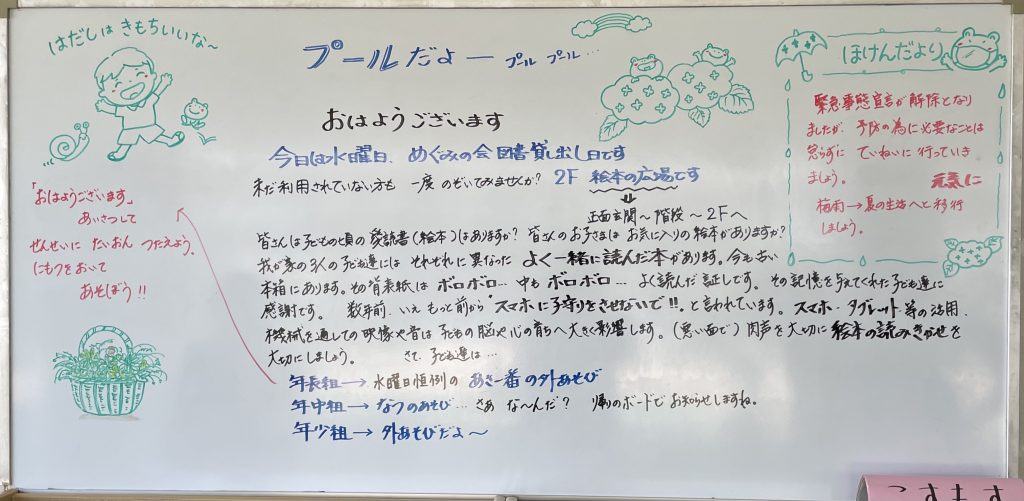 はだしは きもちいいな～
プールだよー プール プール…
おはようございます
今日は水曜日、めぐみの会 図書貸し出し日です
未だ利用されていない方も 一度のぞいてみませんか? 2F 絵本の広場です
正面玄関～階段～2Fへ
皆さんは子どもの頃の愛読書(絵本)はありますか? 皆さんのお子さまは お気に入りの絵本がありますか?
我が家の3人の子ども達には それぞれに異なった よく一緒に読んだ本があります。今も古い
本箱にあります。その背表紙は ボロボロ… 中も ボロボロ… よく読んだ証しです。その記憶を与えてくれた子ども達に
感謝です。 数年前、いえ もっと前から "スマホに子守りをさせないで!!"と言われています。スマホ・タブレット等の活用、
機械を通しての映像や音は 子どもの脳や心の育ちへ大きく影響します。(悪い面で) 肉声を大切に 絵本の読みきかせを
大切にしましょう。 さて、子ども達は…
年長組→ 水曜日恒例の あさ一番の外あそび
年中組→ なつのあそび… さあ な～んだ? 帰りのボードで お知らせしますね。
年少組→ 外あそびだよ～
「おはようございます」
あいさつして
せんせいに たいおん つたえよう。
にもつをおいて
あそぼう!!
ほけんだより
緊急事態宣言が解除となり
ましたが、予防の為に必要なことは
怠らずに ていねいに 行っていき
ましょう。 元気に
梅雨→夏の生活へと移行
しましょう。